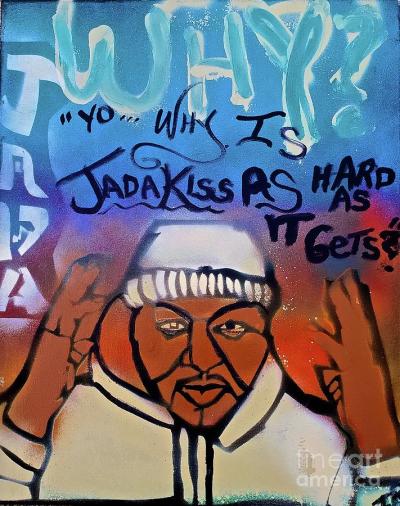 WHY?
JADA
"YO... WHY IS
JADAKISS AS HARD
AS
IT GETS?"
fine art
america